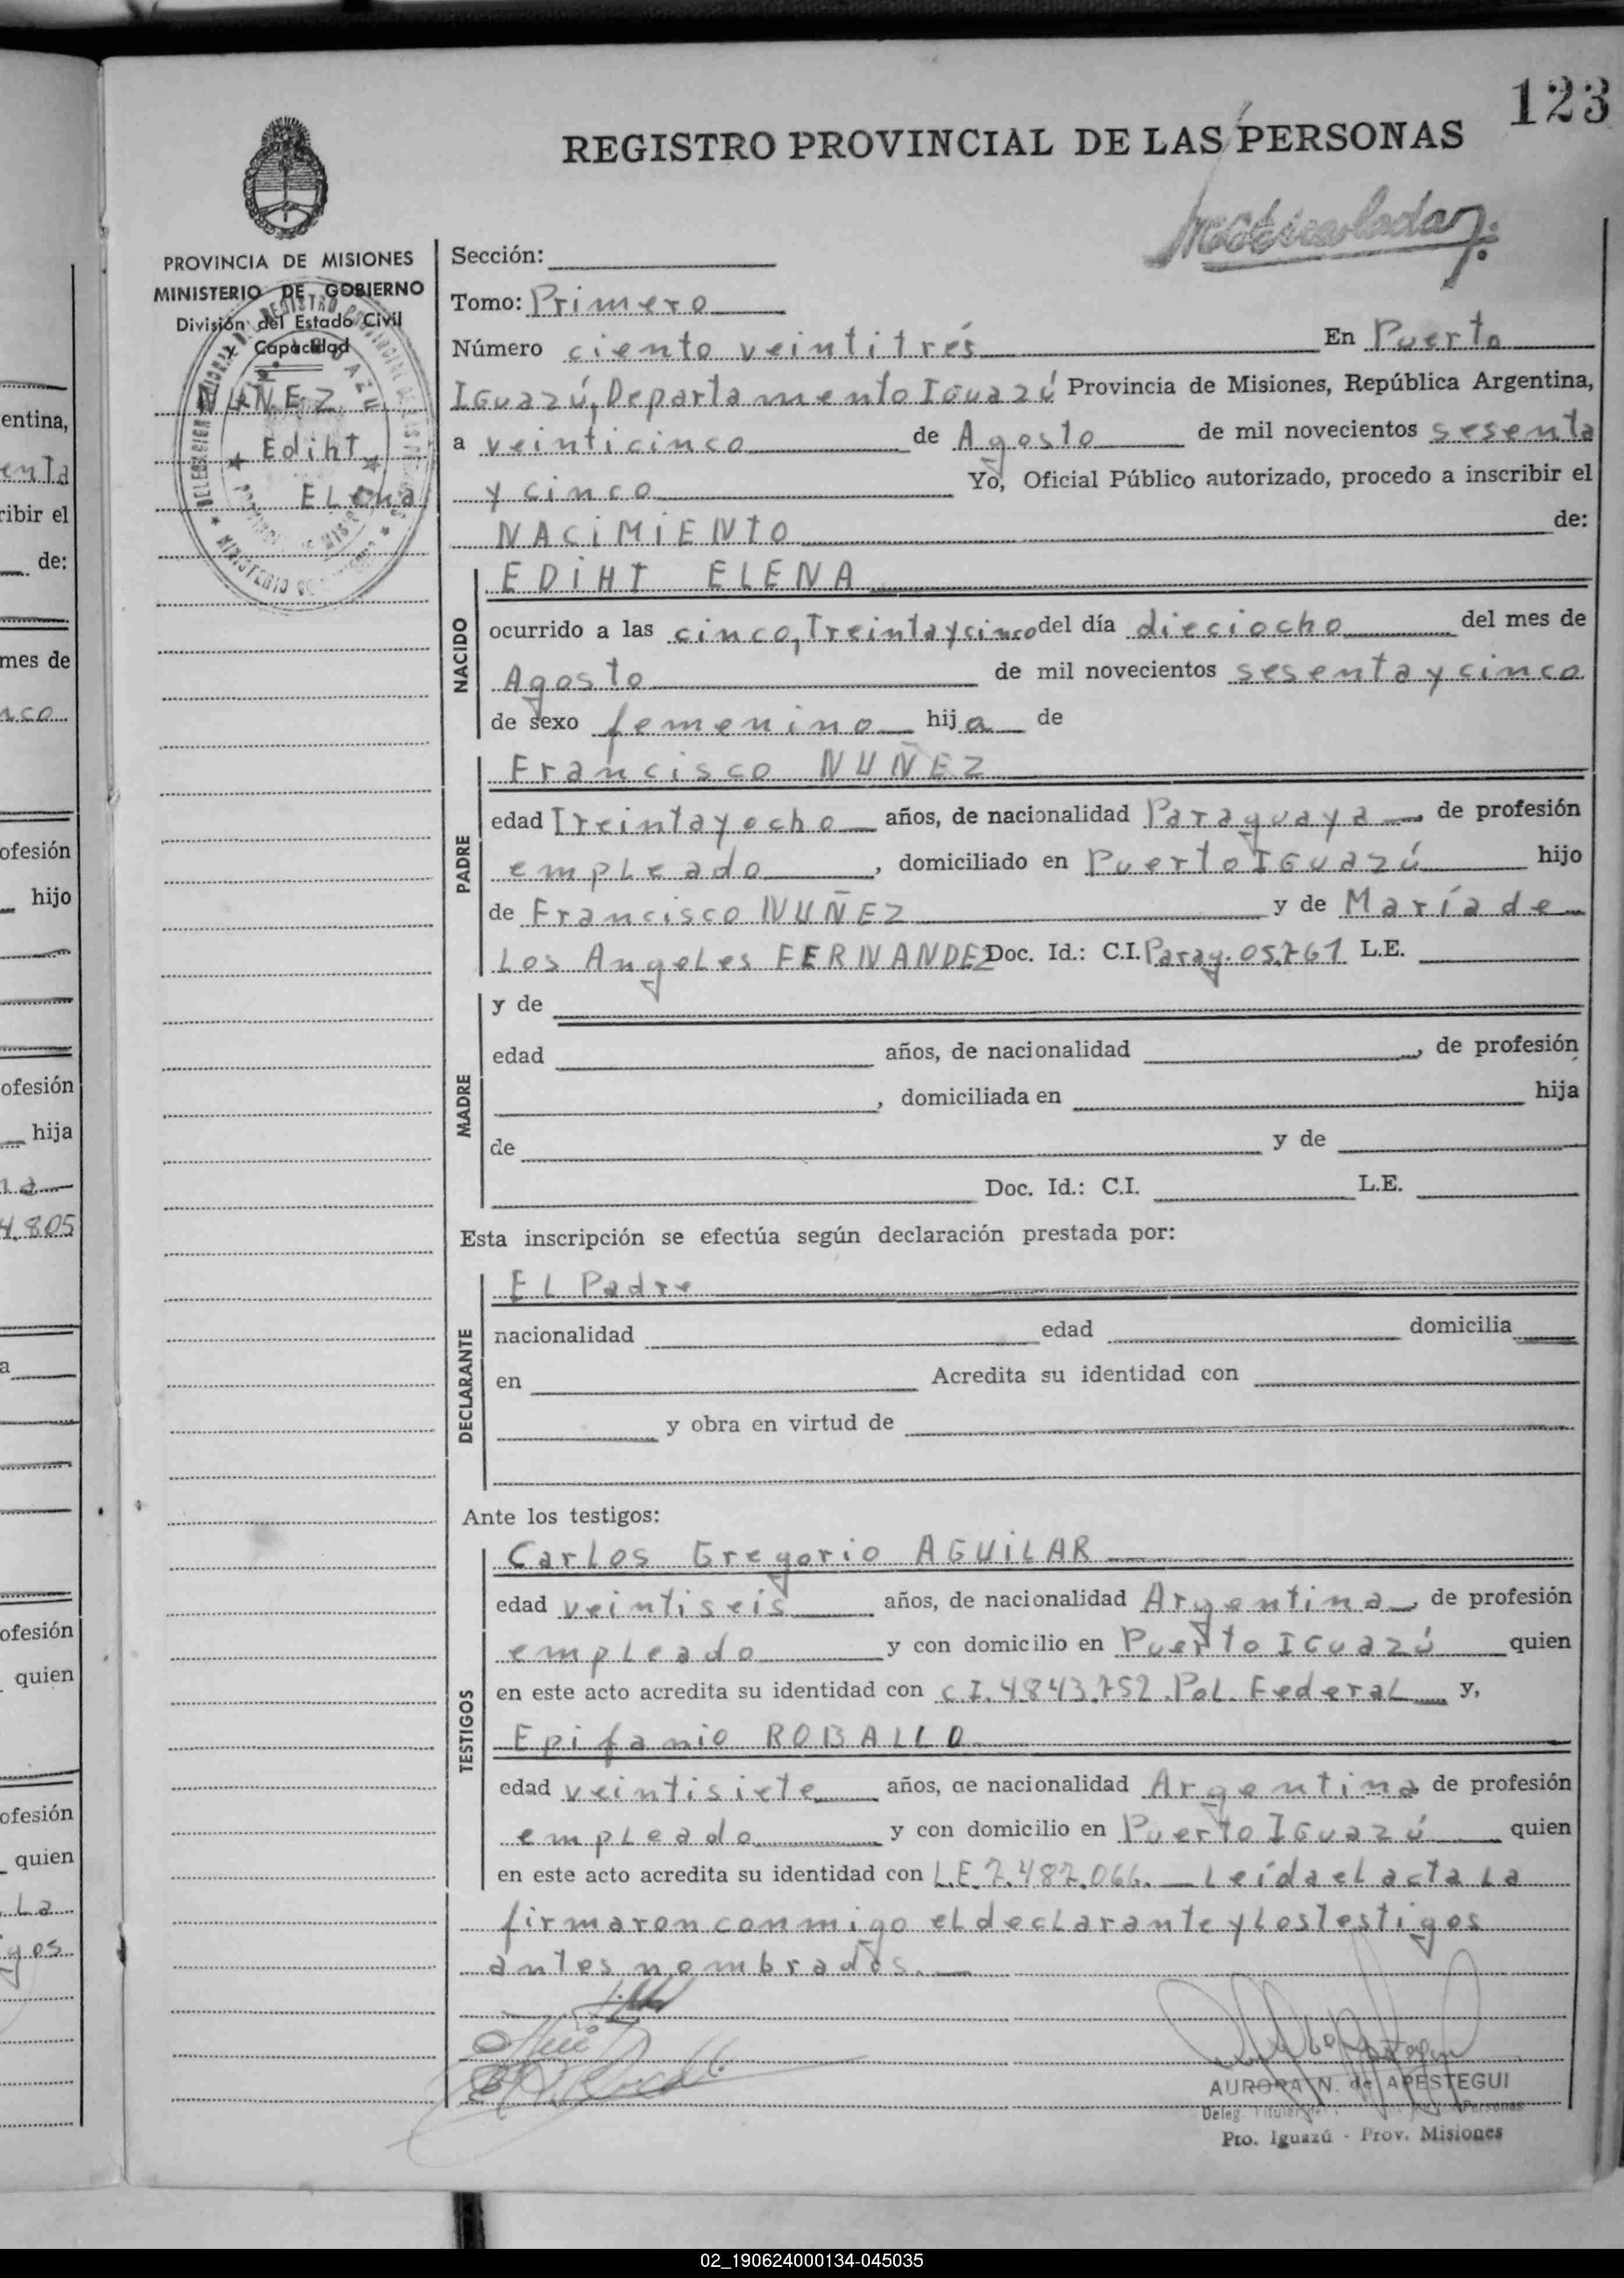 123
REGISTRO PROVINCIAL DE LAS PERSONAS
PROVINCIA DE MISIONES
MINISTERIO DE GOBIERNO
División del Estado Civil
y Capacidad
NUÑEZ
Ediht
ELena
Sección:
Tomo: Primero
Número ciento veintitrés En Puerto
Iguazú, Departamento Iguazú Provincia de Misiones, República Argentina,
a veinticinco de Agosto de mil novecientos sesenta
y cinco Yo, Oficial Público autorizado, procedo a inscribir el
NACIMIENTO de:
NACIDO
EDIHT ELENA
ocurrido a las cinco, Treinta y cinco del día dieciocho del mes de
Agosto de mil novecientos sesenta y cinco
de sexo femenino hija de
PADRE
Francisco NUÑEZ
edad Treinta y ocho años, de nacionalidad Paraguaya, de profesión
empleado, domiciliado en Puerto Iguazú hijo
de Francisco NUÑEZ y de María de
Los Angeles FERNANDEZ Doc. Id.: C.I. Paray. 05.761 L.E.
MADRE
y de
edad años, de nacionalidad , de profesión
, domiciliada en hija
de y de
Doc. Id.: C.I. L.E.
Esta inscripción se efectúa según declaración prestada por:
DECLARANTE
El Padre
nacionalidad edad domicilia
en Acredita su identidad con
y obra en virtud de
Ante los testigos:
TESTIGOS
Carlos Gregorio AGUILAR
edad veintiseis años, de nacionalidad Argentina, de profesión
empleado y con domicilio en Puerto Iguazú quien
en este acto acredita su identidad con C.I. 4843.752 Pol. Federal y,
Epifanio ROBALLO
edad veintisiete años, de nacionalidad Argentina de profesión
empleado y con domicilio en Puerto Iguazú quien
en este acto acredita su identidad con L.E. 7.487.066. Leída el acta la
firmaron conmigo el declarante y los testigos
antes nombrados.
AURORA N. de APESTEGUI
Deleg. Titular Personas
Pto. Iguazú - Prov. Misiones
02_190624000134-045035